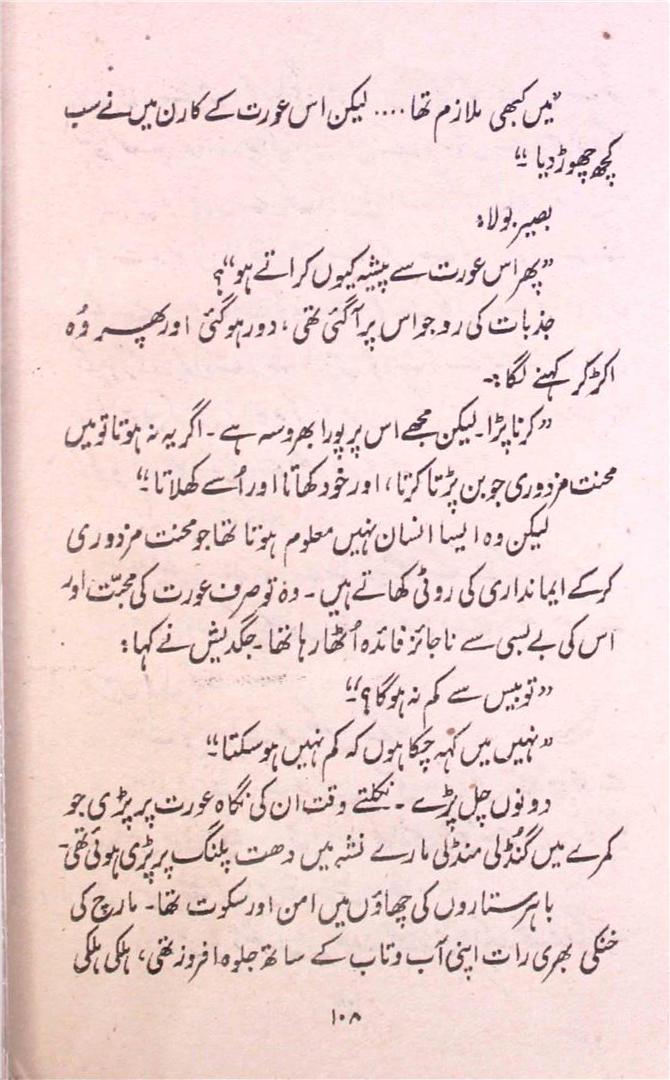 ”میں کبھی ملازم تھا .... لیکن اس عورت کے کارن میں نے سب
کچھ چھوڑ دیا ۔“
بصیر بولا:
”پھر اس عورت سے پیشہ کیوں کراتے ہو“؟
جذبات کی رو جو اس پر آگئی تھی، دور ہوگئی اور پھر وُہ
اکڑ کر کہنے لگا:۔
”کرنا پڑا۔ لیکن مجھے اس پر پورا بھروسہ ہے ۔ اگر یہ نہ ہوتا تو میں
محنت مزدوری جو بن پڑتا کرتا، اور خود کھاتا اور اُسے کھلاتا ۔“
لیکن وہ ایسا انسان نہیں معلوم ہوتا تھا جو محنت مزدوری
کرکے ایمانداری کی روٹی کھاتے ہیں ۔ وہ تو صرف عورت کی محبّت اور
اس کی بے بسی سے ناجائز فائدہ اُٹھا رہا تھا ۔ جگدیش نے کہا:
”تو بیس سے کم نہ ہوگا؟“
”نہیں میں کہہ چکا ہوں کہ کم نہیں ہوسکتا ۔“
دونوں چل پڑے ۔ نکلتے وقت ان کی نگاہ عورت پر پڑی جو
کمرے میں گنڈلی منڈلی مارے نشہ میں دھت پلنگ پر پڑی ہوئی تھی ۔
باہر ستاروں کی چھاؤں میں امن اور سکوت تھا ۔ مارچ کی
خنکی بھری رات اپنی آب و تاب کے ساتھ جلوہ افروز تھی، ہلکی ہلکی
۱۰۸